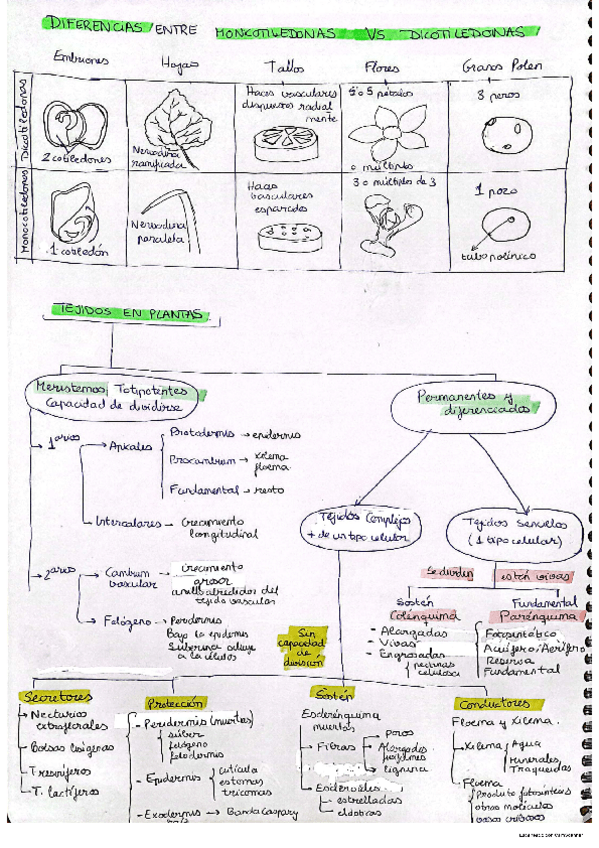 DIFERENCIAS ENTRE MONOCOTILEDONAS VS DICOTILEDONAS
Embriones Hojas Tallos Flores Granos Polen
Dicotiledonas
2 cotiledones
Nervadura
ramificada
Haces vasculares
dispuestos radial
mente
4 o 5 pétalos
o múltiplo
3 poros
Monocotiledonas
1 cotiledón
Nervadura
paralela
Haces
vasculares
esparcidos
3 o múltiplos de 3
1 poro
tubo polínico
TEJIDOS EN PLANTAS
Meristemos, Totipotentes
Capacidad de dividirse
1arios
Apicales
Protodermis → epidermis
Procambium → xilema
floema
Fundamental → resto
Intercalares → crecimiento
longitudinal
2arios
Cambium
vascular
crecimiento
grosor
alrededor del
tejido vascular
Felógeno → Peridermis
Bajo la epidermis
Suberina
a la células
Permanentes y
diferenciados
Tejidos Complejos
+ de un tipo celular
Tejidos Sencillos
(1 tipo celular)
Se dividen
están vivas
Sostén
Colénquima
- Alargadas
- Vivas
- Engrosadas
pectinas
celulosa
Fundamental
Parénquima
Fotosintético
Acuífero/Aerífero
Reserva
Fundamental
Sin
capacidad
de
división
Secretores
Nectarios
extraflorales
Bolsas lisígenas
Tricomas
T. lactíferos
Protección
- Peridermis (muertas)
súber
felógeno
felodermis
- Epidermis
cutícula
estomas
tricomas
- Exodermis → Banda Caspary
Sostén
Esclerénquima
muertos
- Fibras
poros
Alargadas
fusiformes
lignina
- Esclereidas
- estrelladas
Conductores
Floema y Xilema.
- Xilema
Agua
minerales
Traqueidas
- Floema
Producto fotosíntesis
otras moléculas
vasos cribosos